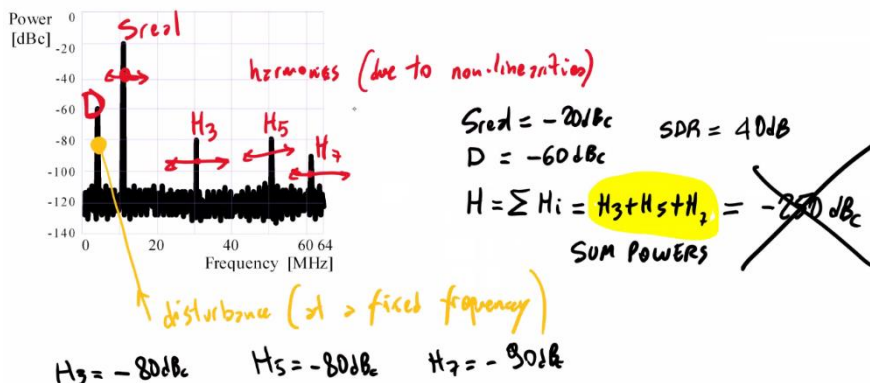 Power
[dBc]
0
-20
-40
-60
-80
-100
-120
-140
0 20 40 60 64
Frequency [MHz]
Sreal
D
harmonics (due to non-linearities)
H3
H5
H7
Sreal = -20dBc
SDR = 40dB
D = -60dBc
H = Σ Hi = H3+H5+H7 = -250 dBc
SUM POWERS
disturbance (at a fixed frequency)
H3 = -80dBc H5 = -80dBc H7 = -90dBc